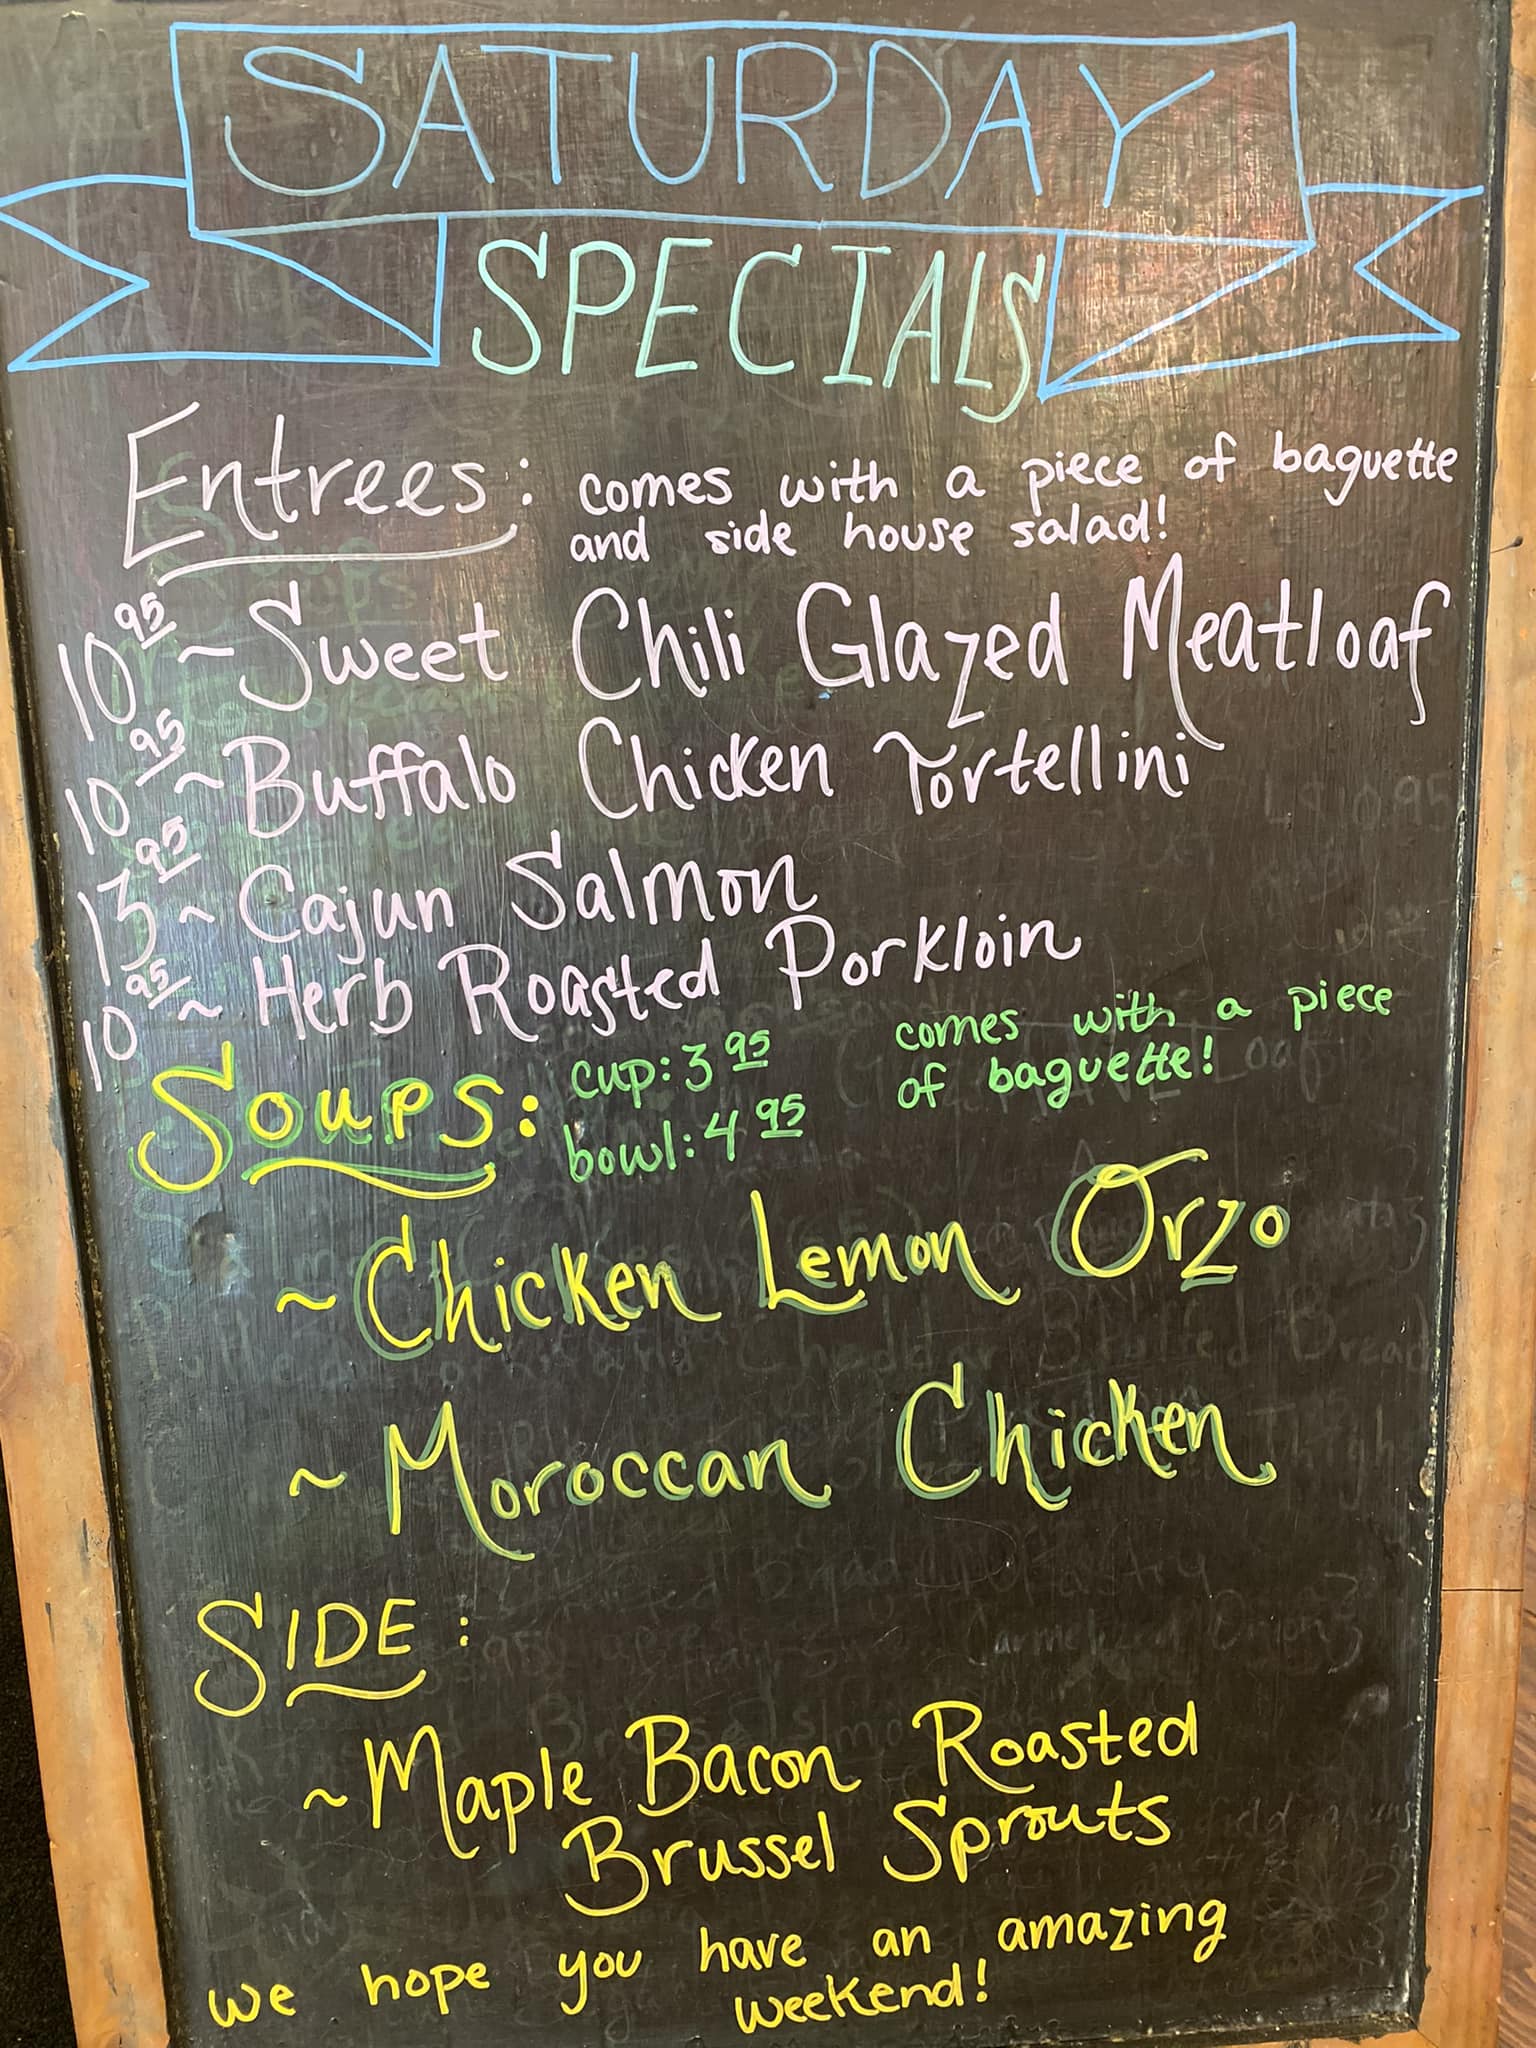 SATURDAY
SPECIALS
Entrees: comes with a piece of baguette
and side house salad!
10 95 ~ Sweet Chili Glazed Meatloaf
10 95 ~ Buffalo Chicken Tortellini
13 95 ~ Cajun Salmon
10 95 ~ Herb Roasted Porkloin
Soups: cup: 3 95 comes with a piece
bowl: 4 95 of baguette!
~ Chicken Lemon Orzo
~ Moroccan Chicken
SIDE:
~ Maple Bacon Roasted
Brussel Sprouts
we hope you have an amazing
weekend!